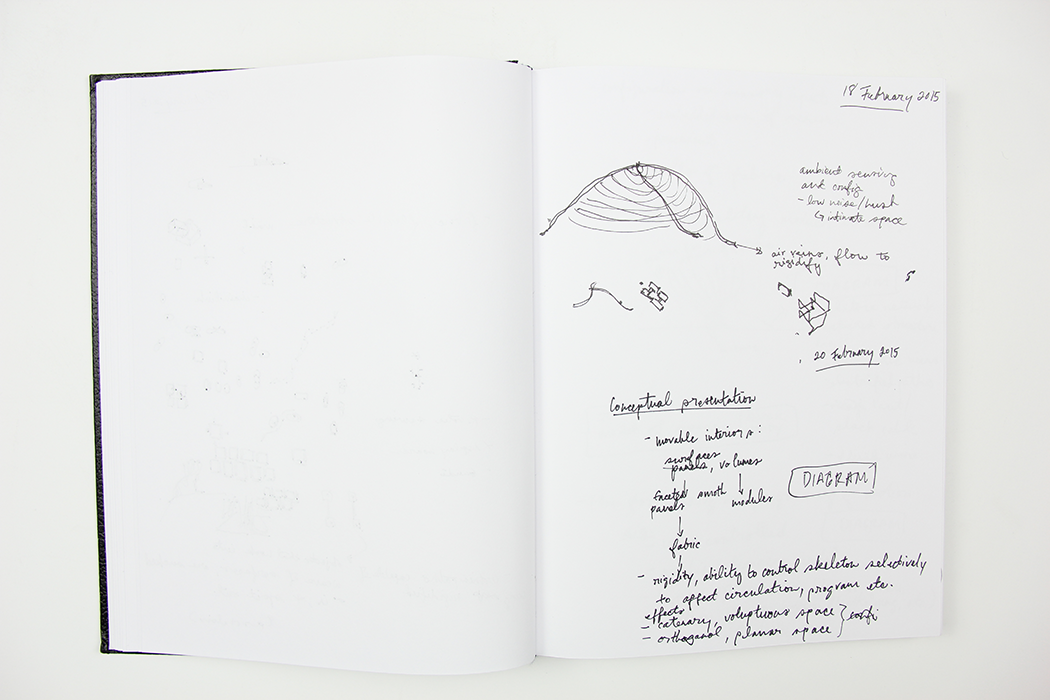 18 February 2015
ambient sensing
and config
- low noise/hush
↳ intimate space
air veins, flow to
rigidify
20 February 2015
Conceptual presentation
- movable interiors:
surfaces
panels, volumes
faceted smoth
panels
modules
DIAGRAM
fabric
- rigidity, ability to control skeleton selectively
to affect circulation, program etc.
effects
- catenary, voluptuous space
- orthaganol, planar space